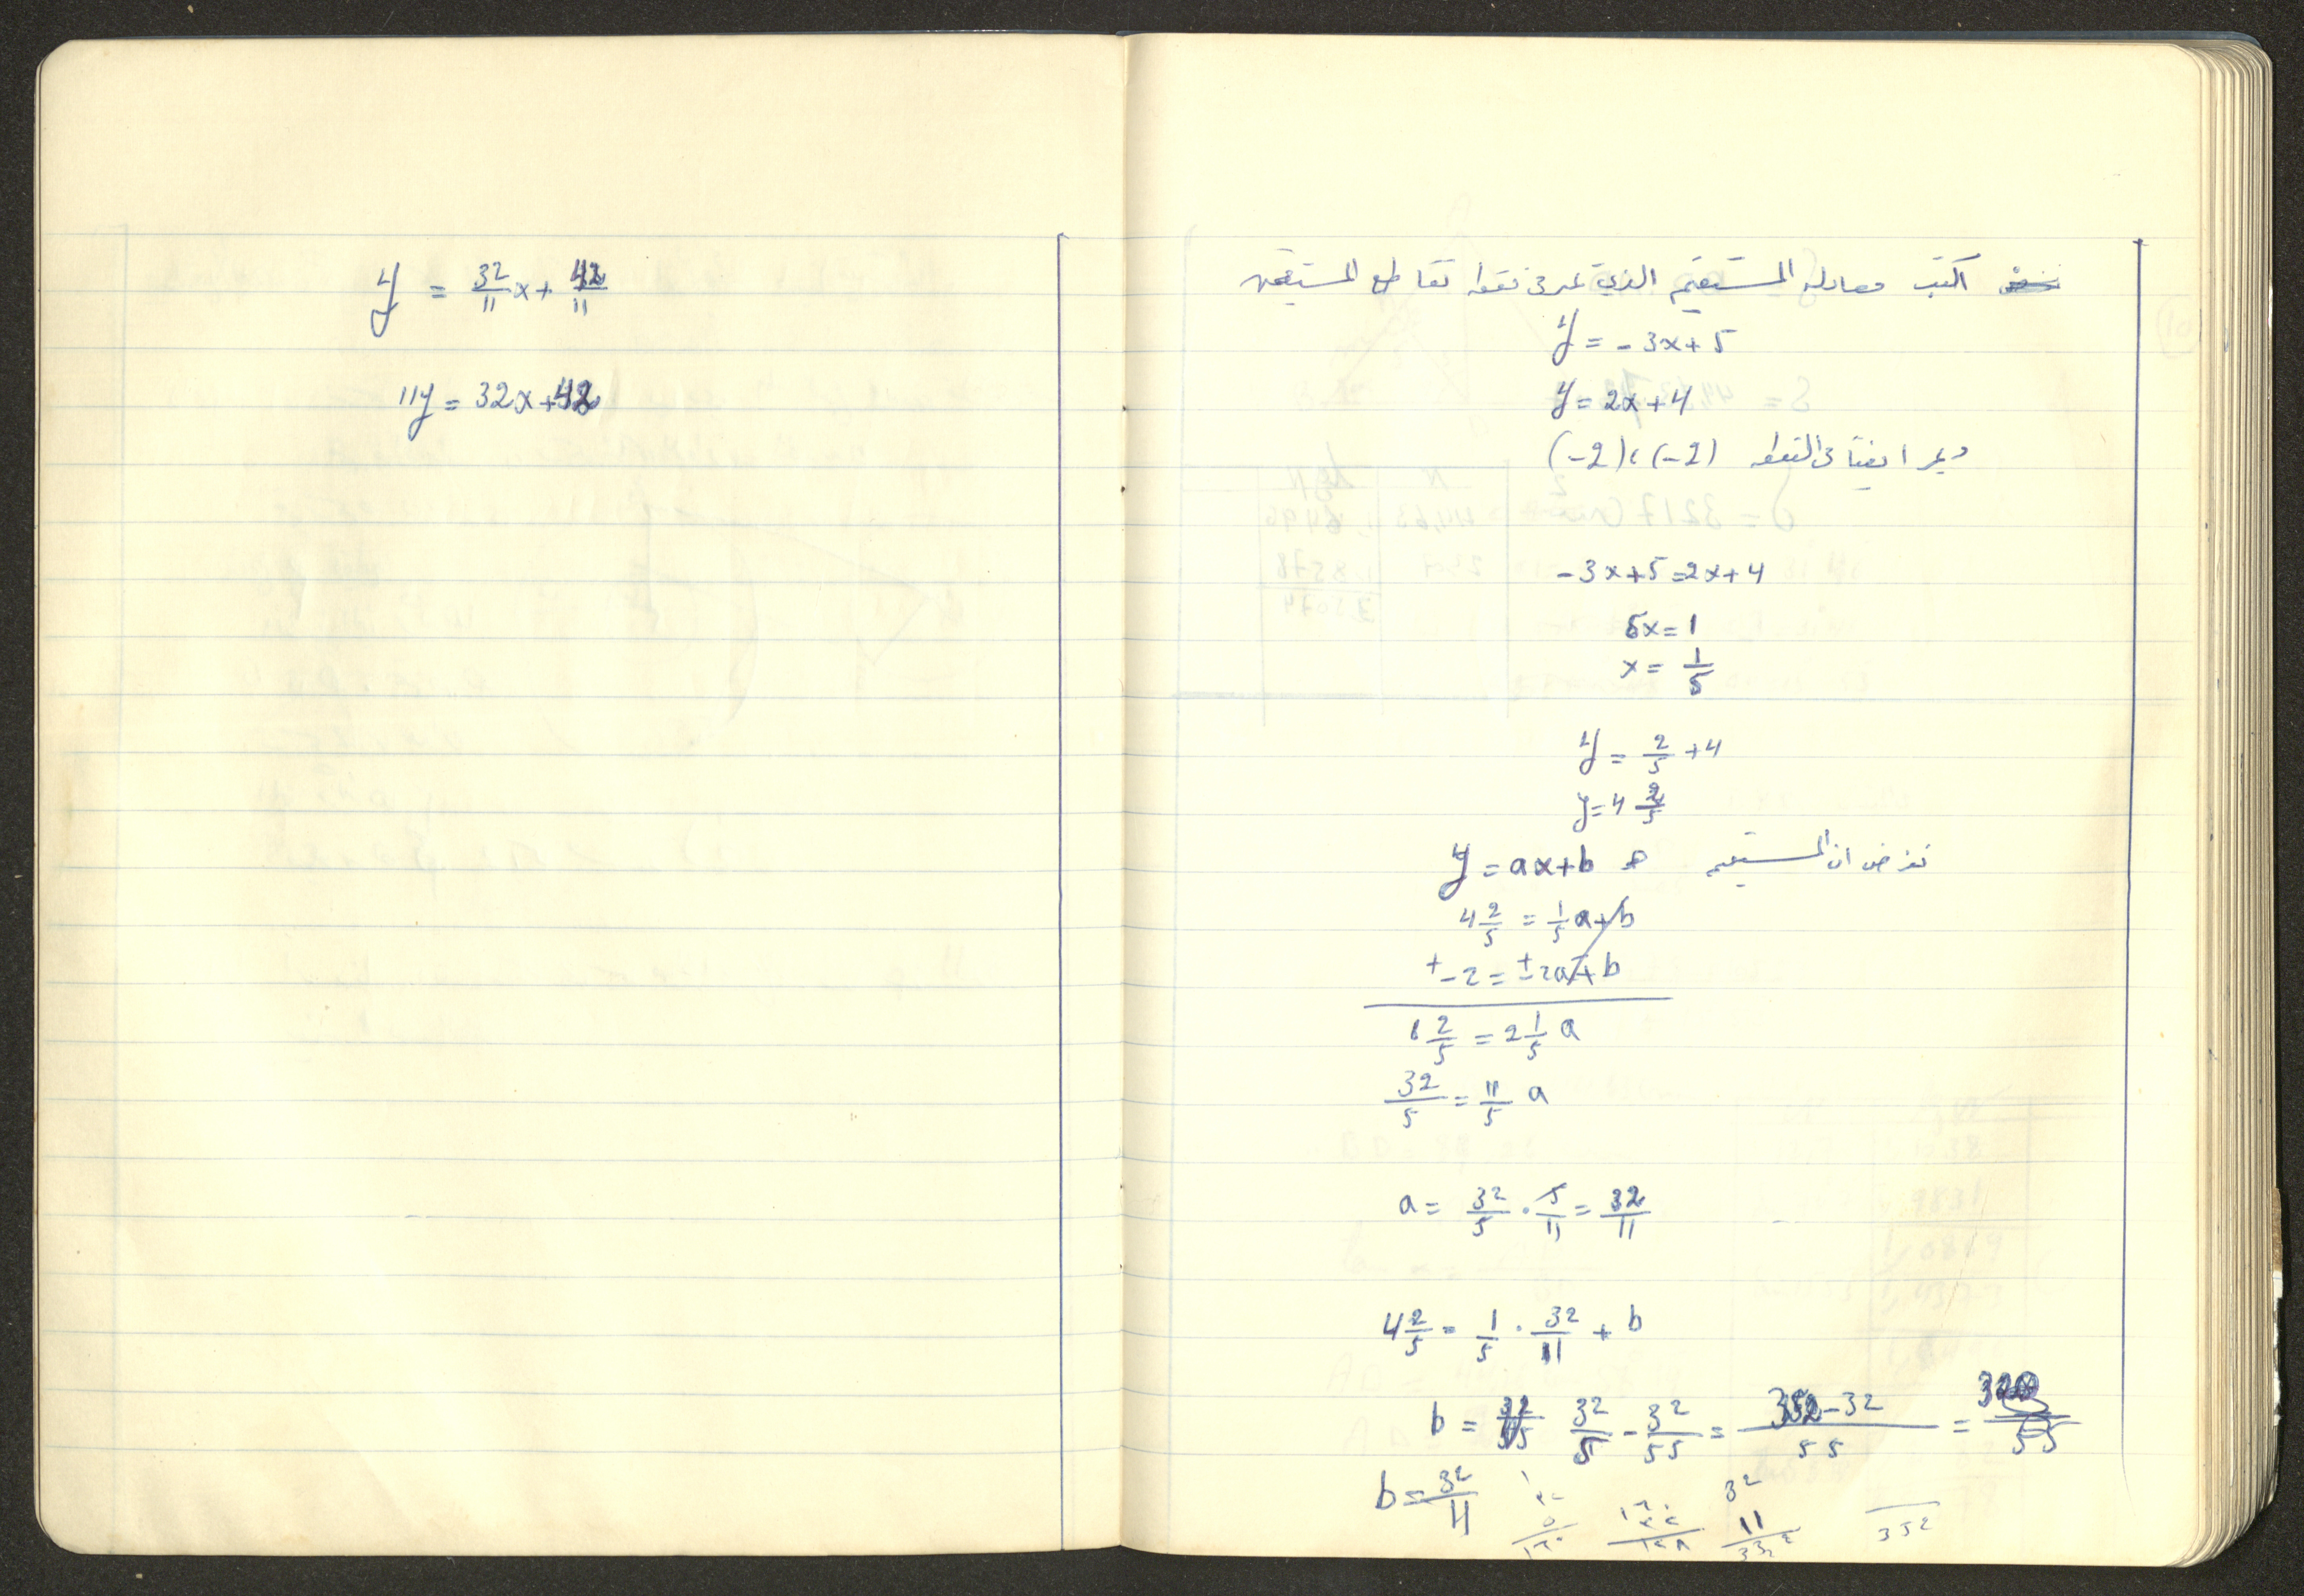 اكتب معادلة المستقيم الذي يمر في نقطة تقاطع المستقيمين
y = - 3x + 5
y = 2x + 4
ويمر ايضا في النقطة (-2) ، (-2)
- 3x + 5 = 2x + 4
5x = 1
x = 1/5
y = 2/5 + 4
y = 4 2/5
نفرض ان المستقيم y = ax + b
4 2/5 = 1/5 a + b
+ - 2 = + - 2a + b
6 2/5 = 2 1/5 a
32/5 = 11/5 a
a = 32/5 · 5/11 = 32/11
4 2/5 = 1/5 · 32/11 + b
b = 32/5 - 32/55 = 352 - 32/55 = 320/55
b = 32/11
32
11
352
y = 32/11 x + 42/11
11y = 32x + 42